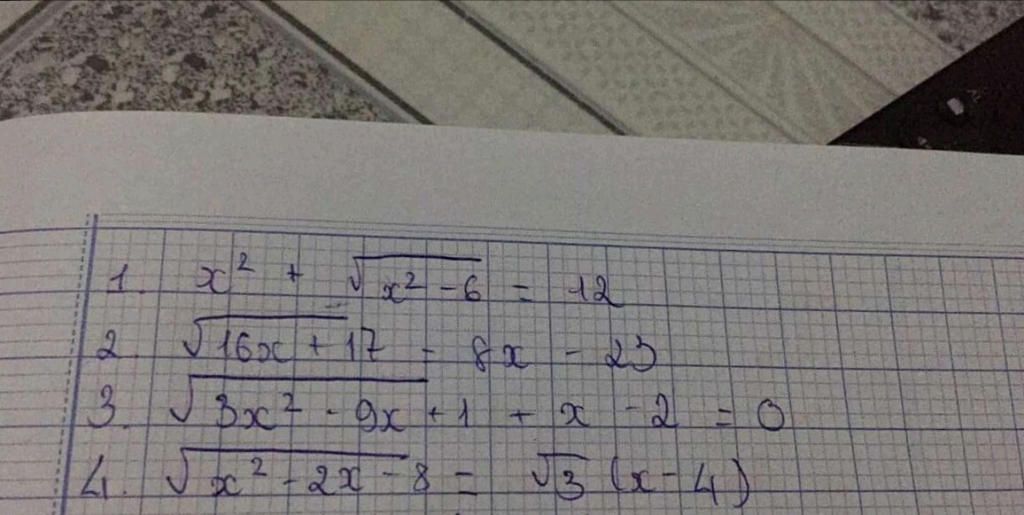 1. x² + √(x² - 6) = 12
2. √(16x + 17) = 8x - 23
3. √(3x² - 9x + 1) + x - 2 = 0
4. √(x² - 2x - 8) = √3 (x - 4)